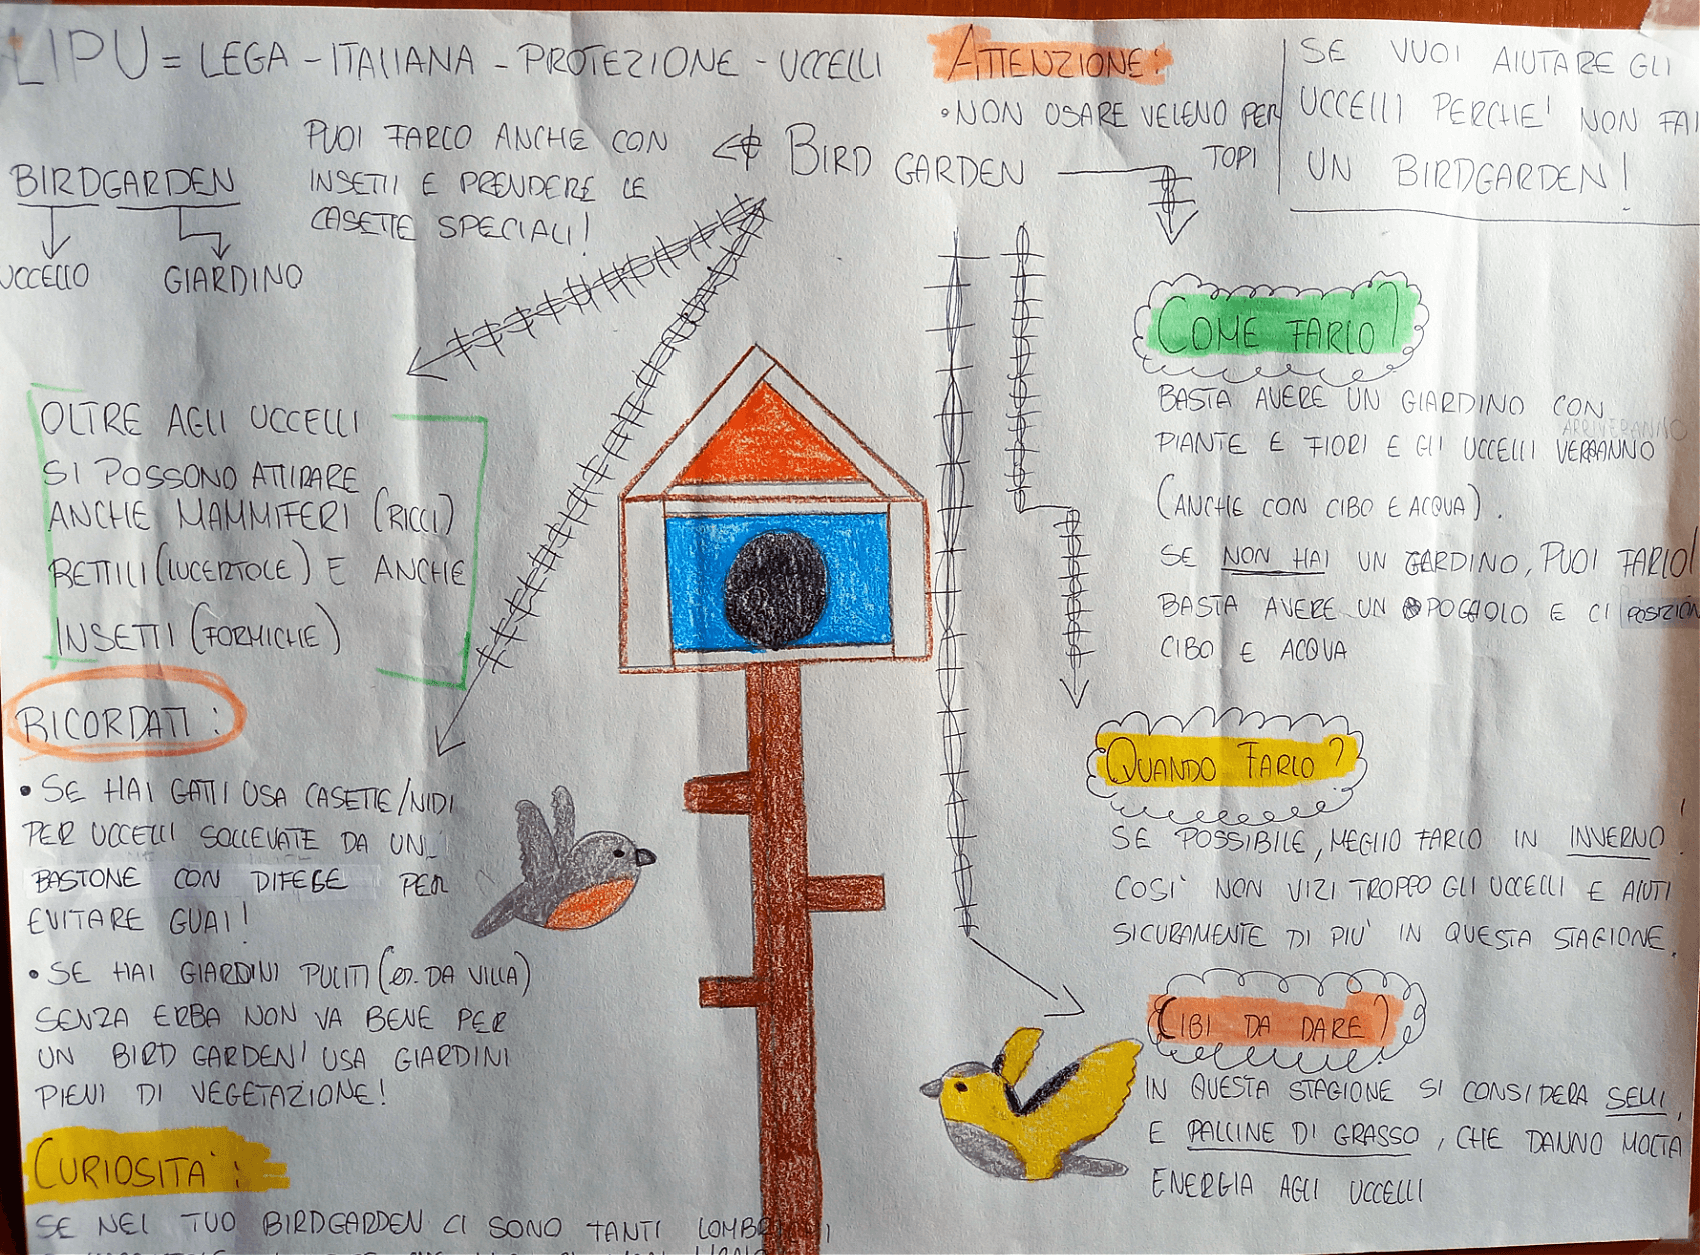 LIPU = LEGA - ITALIANA - PROTEZIONE - UCCELLI
BIRDGARDEN
UCCELLO GIARDINO
PUOI FARLO ANCHE CON
INSETTI E PRENDERE LE
CASETTE SPECIALI!
BIRD GARDEN
ATTENZIONE:
•NON USARE VELENO PER
TOPI
SE VUOI AIUTARE GLI
UCCELLI PERCHE' NON FAI
UN BIRDGARDEN!
OLTRE AGLI UCCELLI
SI POSSONO ATTIRARE
ANCHE MAMMIFERI (RICCI)
RETTILI (LUCERTOLE) E ANCHE
INSETTI (FORMICHE)
RICORDATI:
• SE HAI GATTI USA CASETTE/NIDI
PER UCCELLI SOLLEVATE DA UN
BASTONE CON DIFESE PER
EVITARE GUAI!
• SE HAI GIARDINI PULITI (es. DA VILLA)
SENZA ERBA NON VA BENE PER
UN BIRD GARDEN! USA GIARDINI
PIENI DI VEGETAZIONE!
CURIOSITA':
SE NEL TUO BIRDGARDEN CI SONO TANTI
COME FARLO?
BASTA AVERE UN GIARDINO CON
ARRIVERANNO
PIANTE E FIORI E GLI UCCELLI VERRANNO
(ANCHE CON CIBO E ACQUA).
SE NON HAI UN GARDINO, PUOI FARLO!
BASTA AVERE UN POGGIOLO E CI POSIZION
CIBO E ACQUA
QUANDO FARLO?
SE POSSIBILE, MEGLIO FARLO IN INVERNO!
COSI' NON VIZI TROPPO GLI UCCELLI E AIUTI
SICURAMENTE DI PIU' IN QUESTA STAGIONE.
CIBI DA DARE?
IN QUESTA STAGIONE SI CONSIDERA SEMI,
E PALLINE DI GRASSO, CHE DANNO MOLTA
ENERGIA AGLI UCCELLI